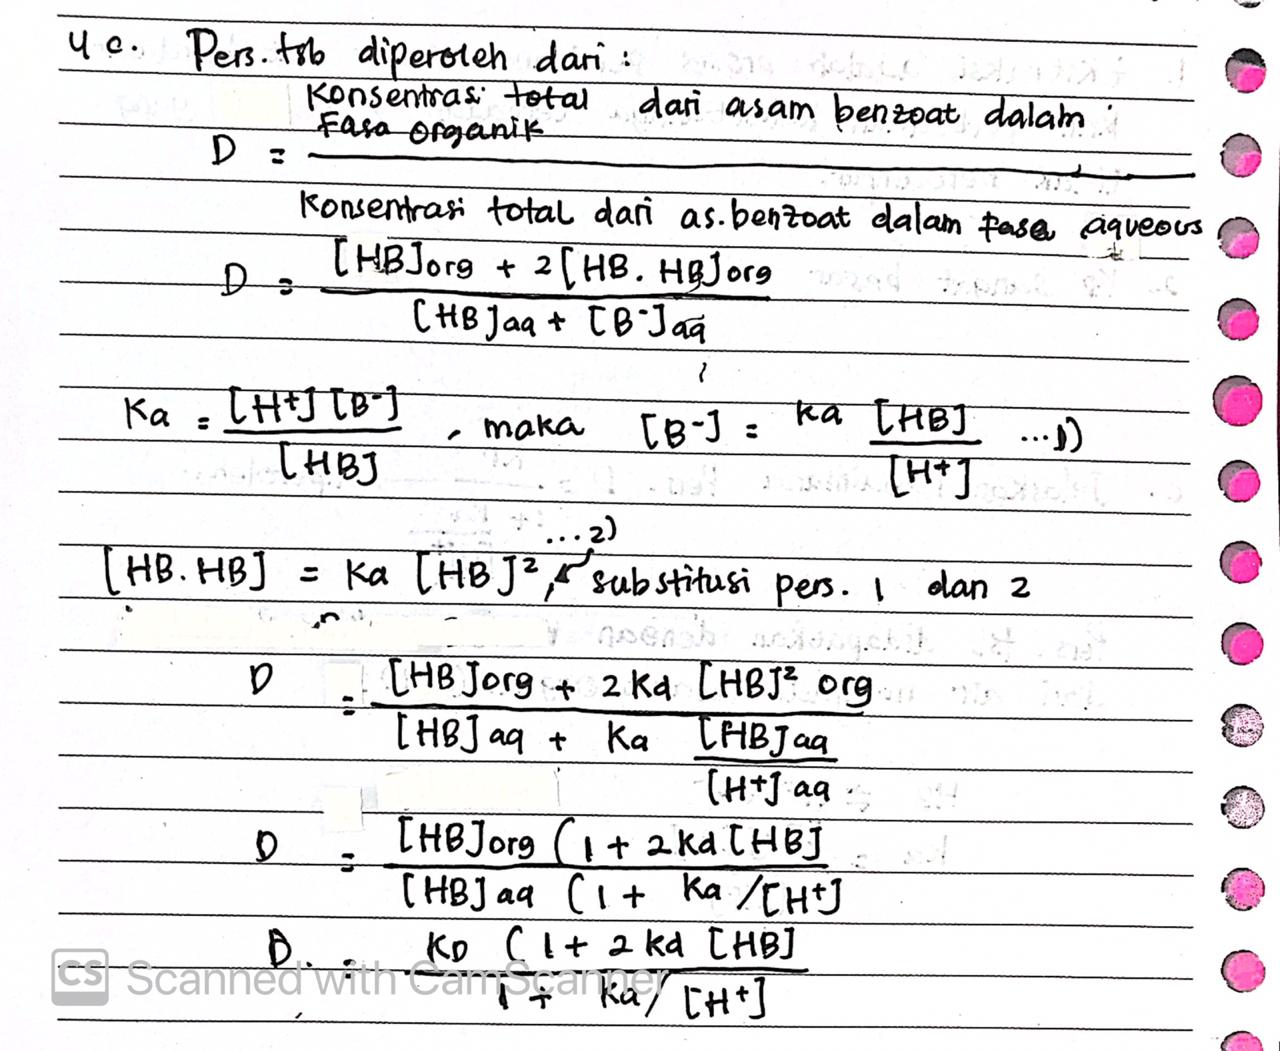 4 c. Pers. tsb diperoleh dari :
Konsentrasi total dari asam benzoat dalam
Fasa organik
D = ―――
Konsentrasi total dari as. benzoat dalam fasa aqueous
D = [HB]org + 2[HB. HB]org
[HB]aq + [B-]aq
Ka = [H+] [B-] , maka [B-] = Ka [HB] ...1)
[HB] [H+]
...2)
[HB. HB] = Ka [HB]², substitusi pers. 1 dan 2
D = [HB]org + 2 Kd [HB]² org
[HB] aq + Ka [HB]aq
[H+] aq
D = [HB]org (1 + 2Kd [HB]
[HB] aq (1 + Ka /[H+]
D. = KD (1 + 2 Kd [HB]
1 + Ka/ [H+]
CS Scanned with CamScanner